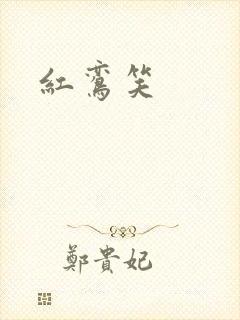 紅鸞笑
鄭貴妃